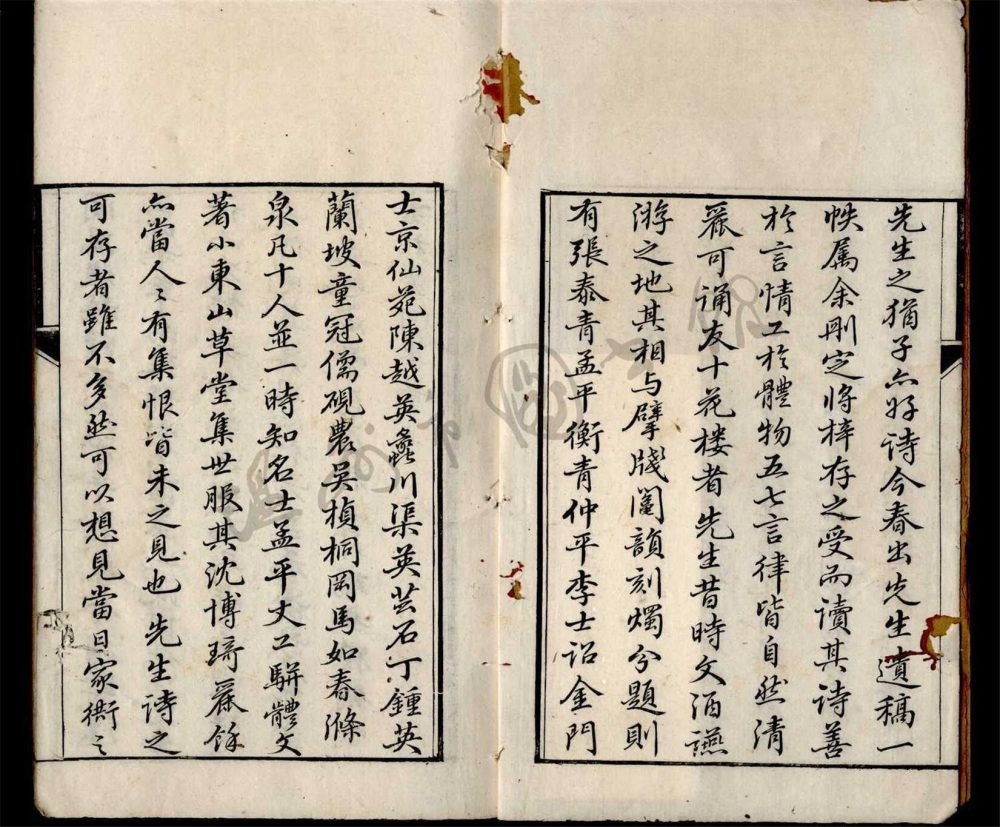 先生之猶子亦好诗今春出先生遺稿一
帙属余刪定将梓存之受而讀其诗善
於言情工於體物五七言律皆自然清
麗可诵友十花楼者先生昔時文酒讌
游之地其相与擘牋闔韻刻燭分題則
有張泰青孟平衡青仲平李士诏金門
士京仙苑陳越英蠡川渠英芸石丁鍾英
蘭坡童冠儒硯農吴楨桐岡馬如春滌
泉凡十人並一時知名士孟平丈工駢體文
著小東山草堂集世服其沈博琦麗餘
亦當人〻有集恨皆未之見也 先生诗之
可存者雖不多然可以想見當日家衖之